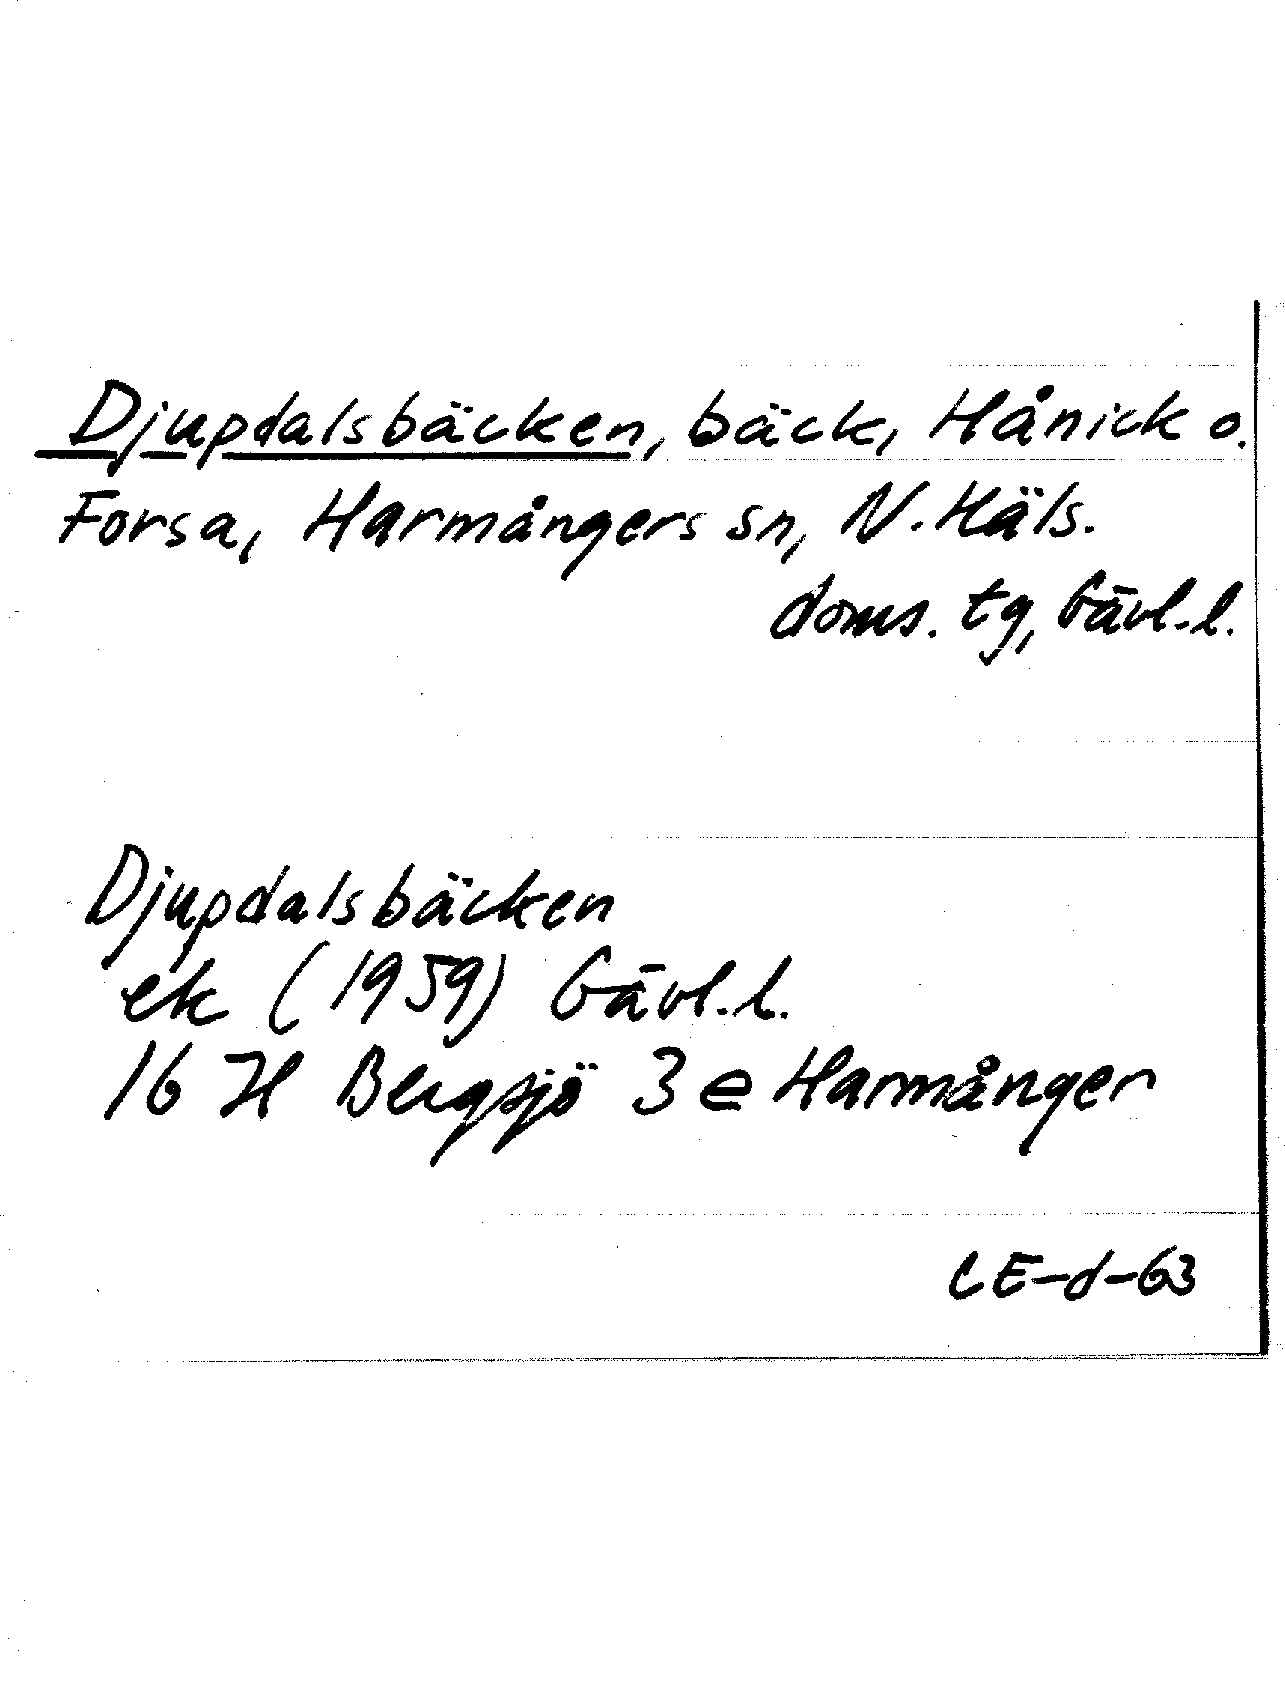 Djupdalsbäcken, bäck, Hånick o.
Forsa, Harmångers sn, N. Häls.
doms. tg, Gävl. l.
Djupdalsbäcken
ek (1959) Gävl. l.
16 H Bergsjö 3 e Harmånger
CE-d-63